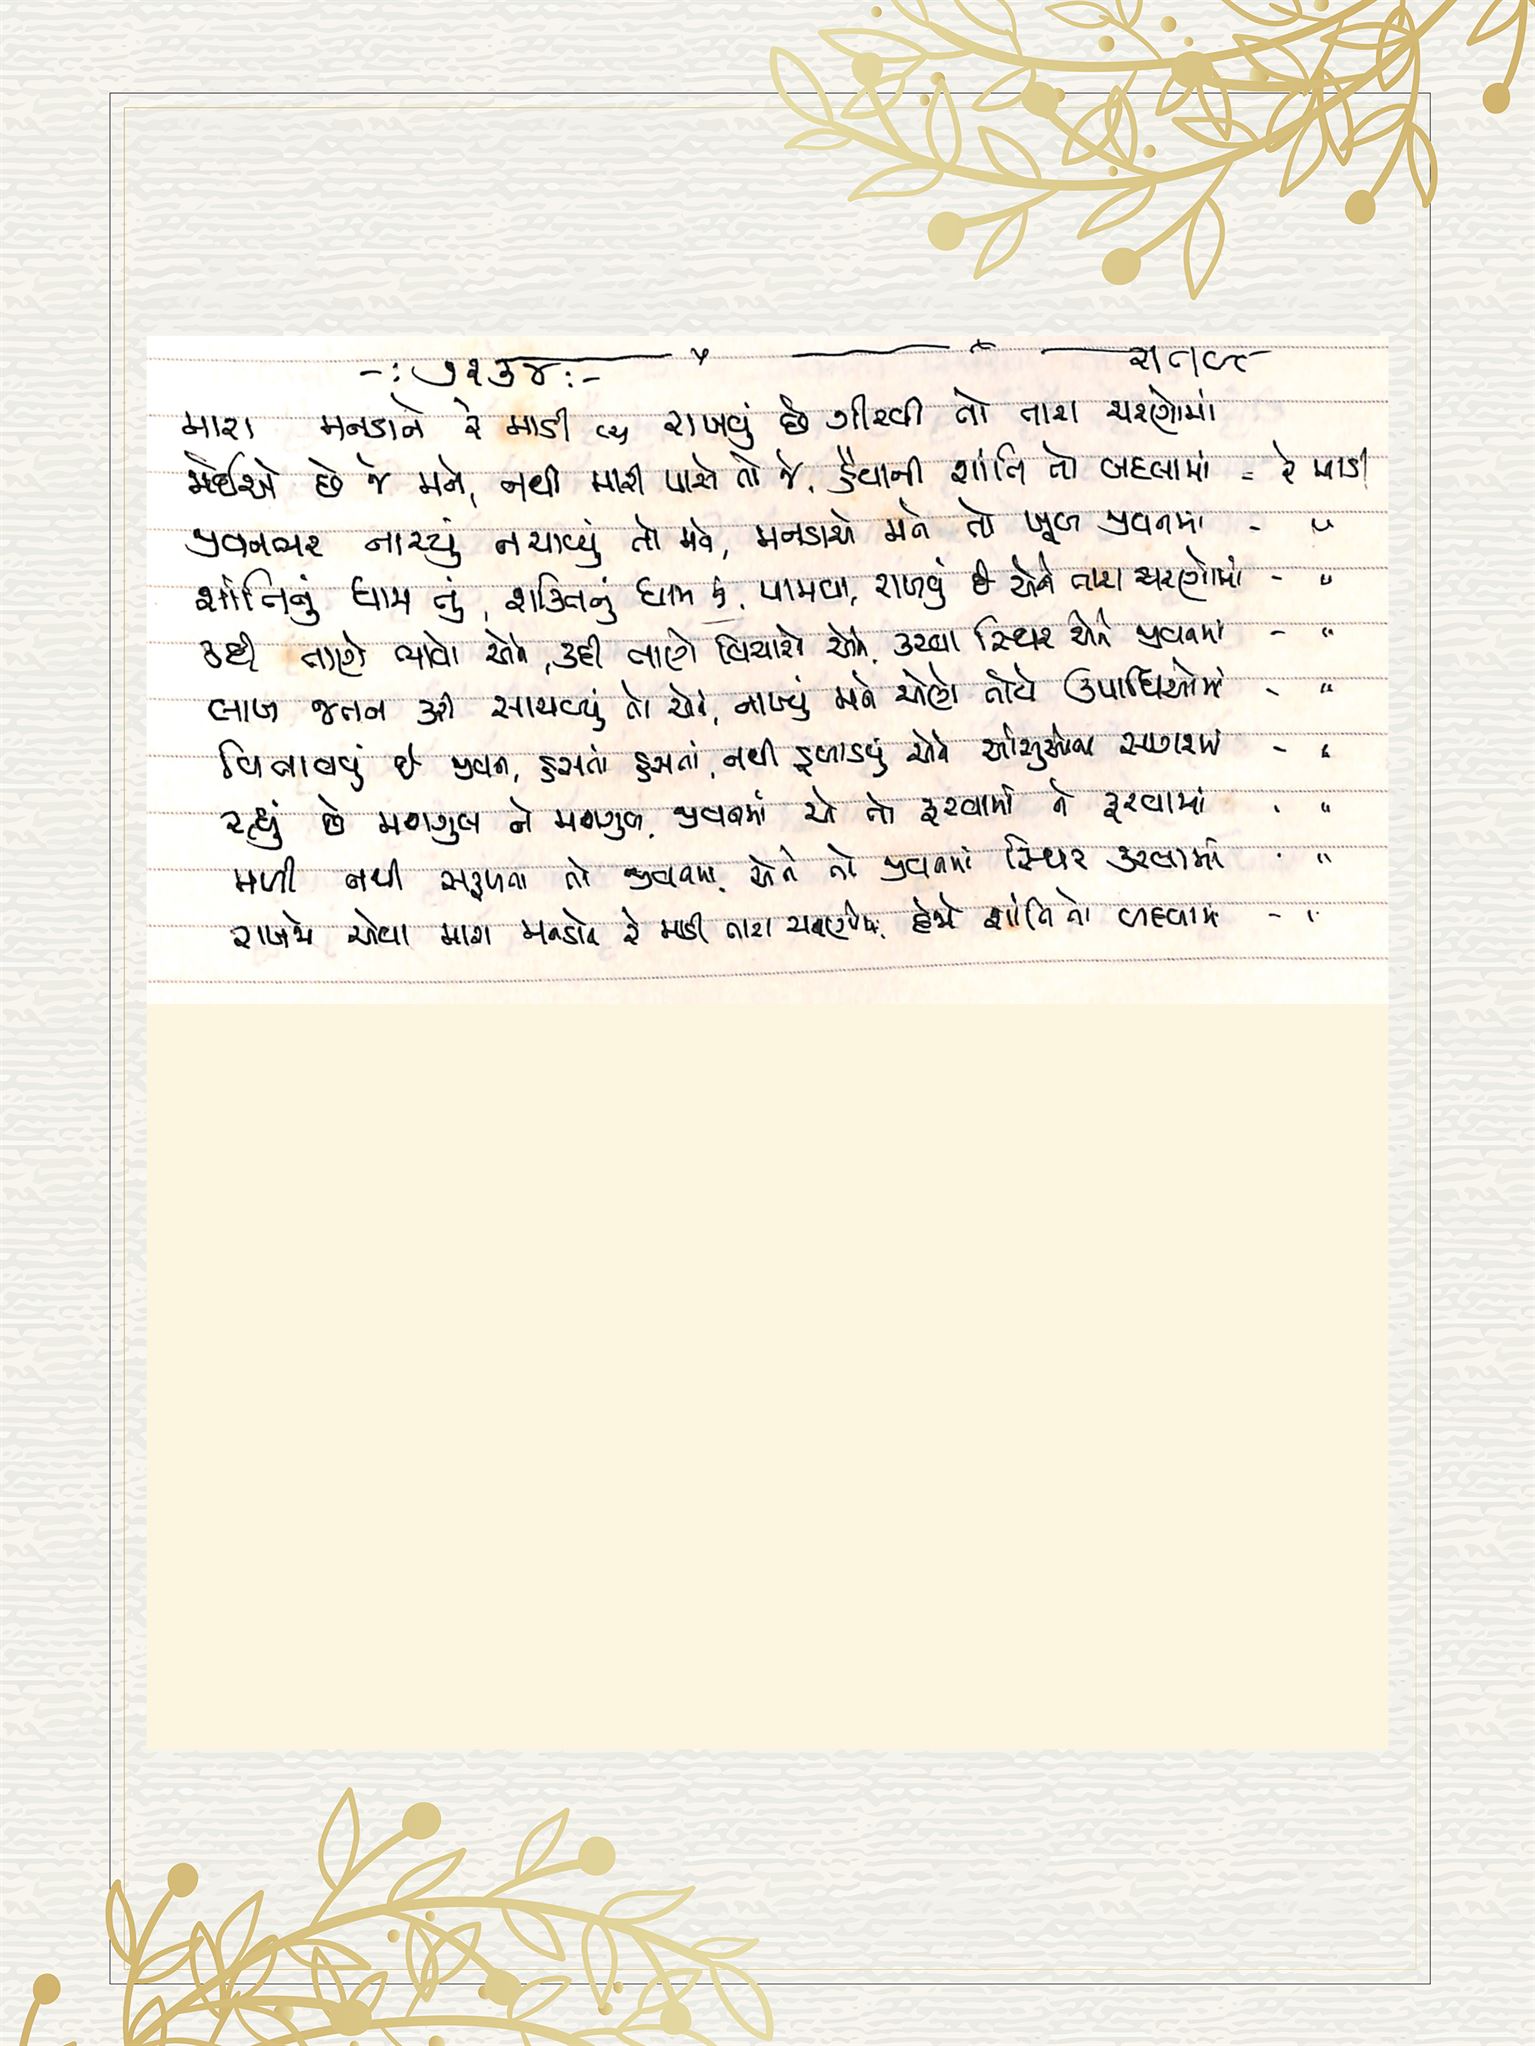 -: ૭૨૩૪ :-
મારા મનડાને રે માડી રાખવું છે ગીરવી તો તારા ચરણોમાં
જોઈએ છે જે મને, નથી મારી પાસે તો જે, દેવાની શાંતિ તો બદલામાં - રે માડી
જીવનભર નાચ્યું નચાવ્યું તો મને, મનડાએ મને તો ખૂબ જીવનમાં - "
શાંતિનું ધામ તું, શક્તિનું ધામ તું, પામવા, રાખવું છે એને તારા ચરણોમાં - "
કદી તાણે ભાવો એને, કદી તાણે વિચારો એને, કરવા સ્થિર એને જીવનમાં - "
લાખ જતન કરી સાચવ્યું તો એને, નાખ્યું મને એણે તોયે ઉપાધિઓમાં - "
વિતાવવું છે જીવન, હસતાં હસતાં, નથી ડુબાડવું એને આંસુઓના સાગરમાં - "
રહ્યું છે મશગુલ ને મશગુલ, જીવનમાં એ તો ફરવામાં ને ફરવામાં - "
મળી નથી સફળતા તો જીવનમાં, એને તો જીવનમાં સ્થિર કરવામાં - "
રાખજે એવા મારા મનડાને રે માડી તારા ચરણોમાં, દેજે શાંતિ તો બદલામાં - "